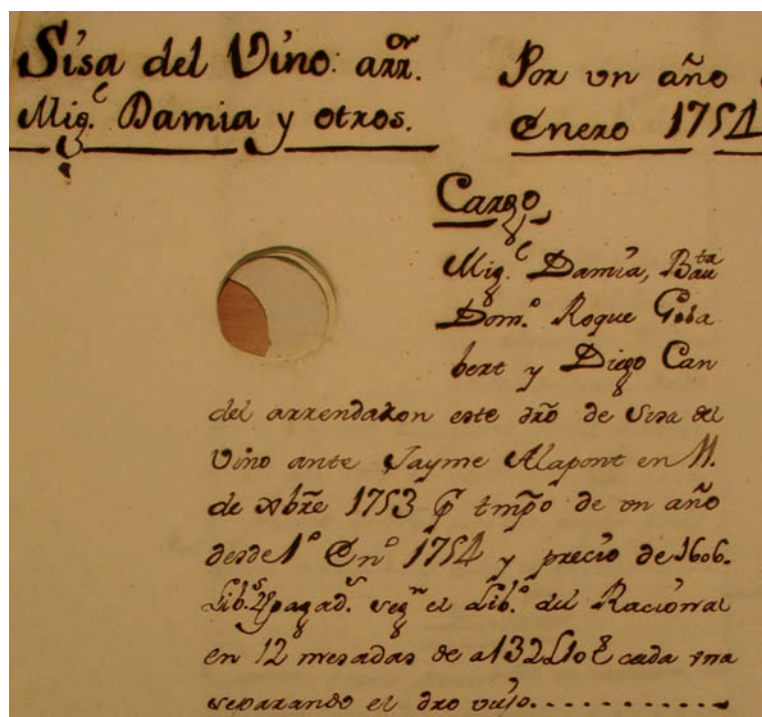 Sisa del Vino: arr.or
Mig.l Damia y otros.
Por un año
Enero 1754
Cargo
Mig.l Damia, Bau.ta
Dom.o Roque Gisa
bert y Diego Can
del arrendaron este dro de Sisa del
Vino ante Jayme Alapont en 11.
de xbre 1753 p tmpo de un año
desde 1.o En.o 1754 y precio de 1606.
Lib.s pagad.s seg.n el Lib.o del Racional
en 12 mesadas de a 132L10 cada una
separando el dro viejo